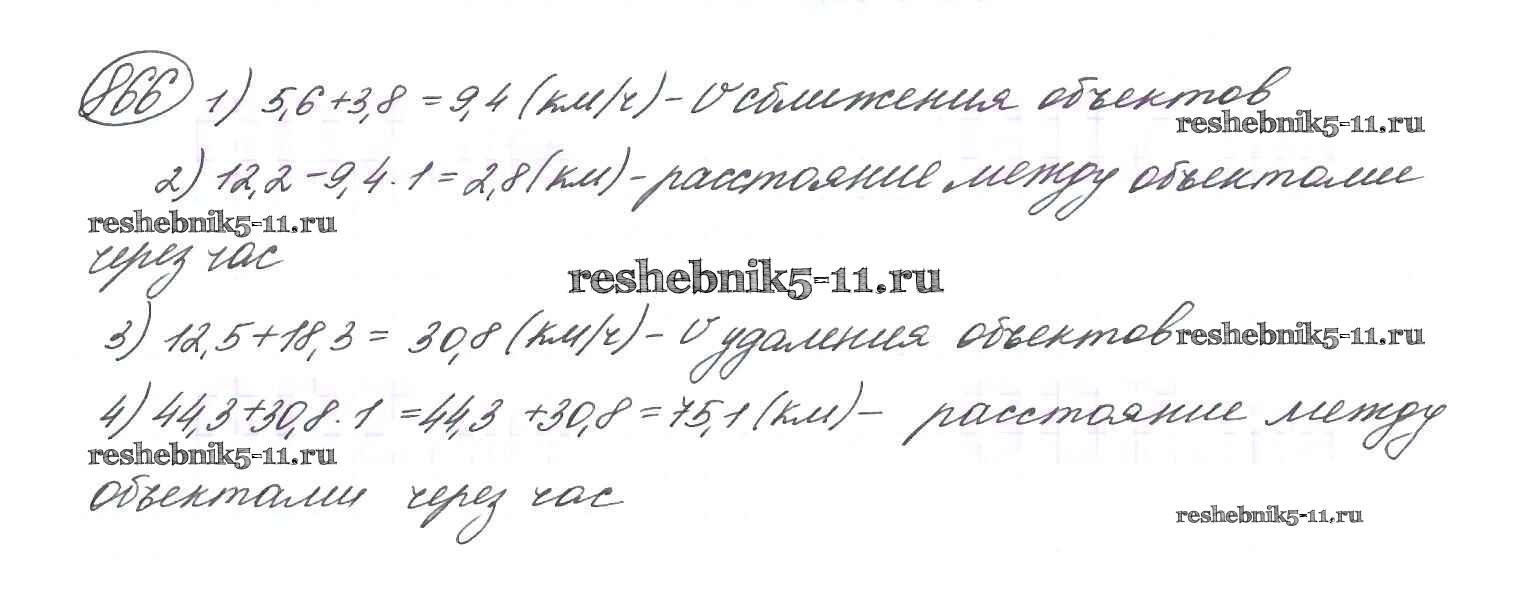 866 1) 5,6+3,8 = 9,4 (км/ч) - V сближения объектов
reshebnik5-11.ru
2) 12,2 - 9,4 · 1 = 2,8 (км) - расстояние между объектами
reshebnik5-11.ru
через час
reshebnik5-11.ru
3) 12,5+18,3 = 30,8 (км/ч) - V удаления объектов
reshebnik5-11.ru
4) 44,3+30,8 · 1 = 44,3 + 30,8 = 75,1 (км) - расстояние между
reshebnik5-11.ru
объектами через час
reshebnik5-11.ru